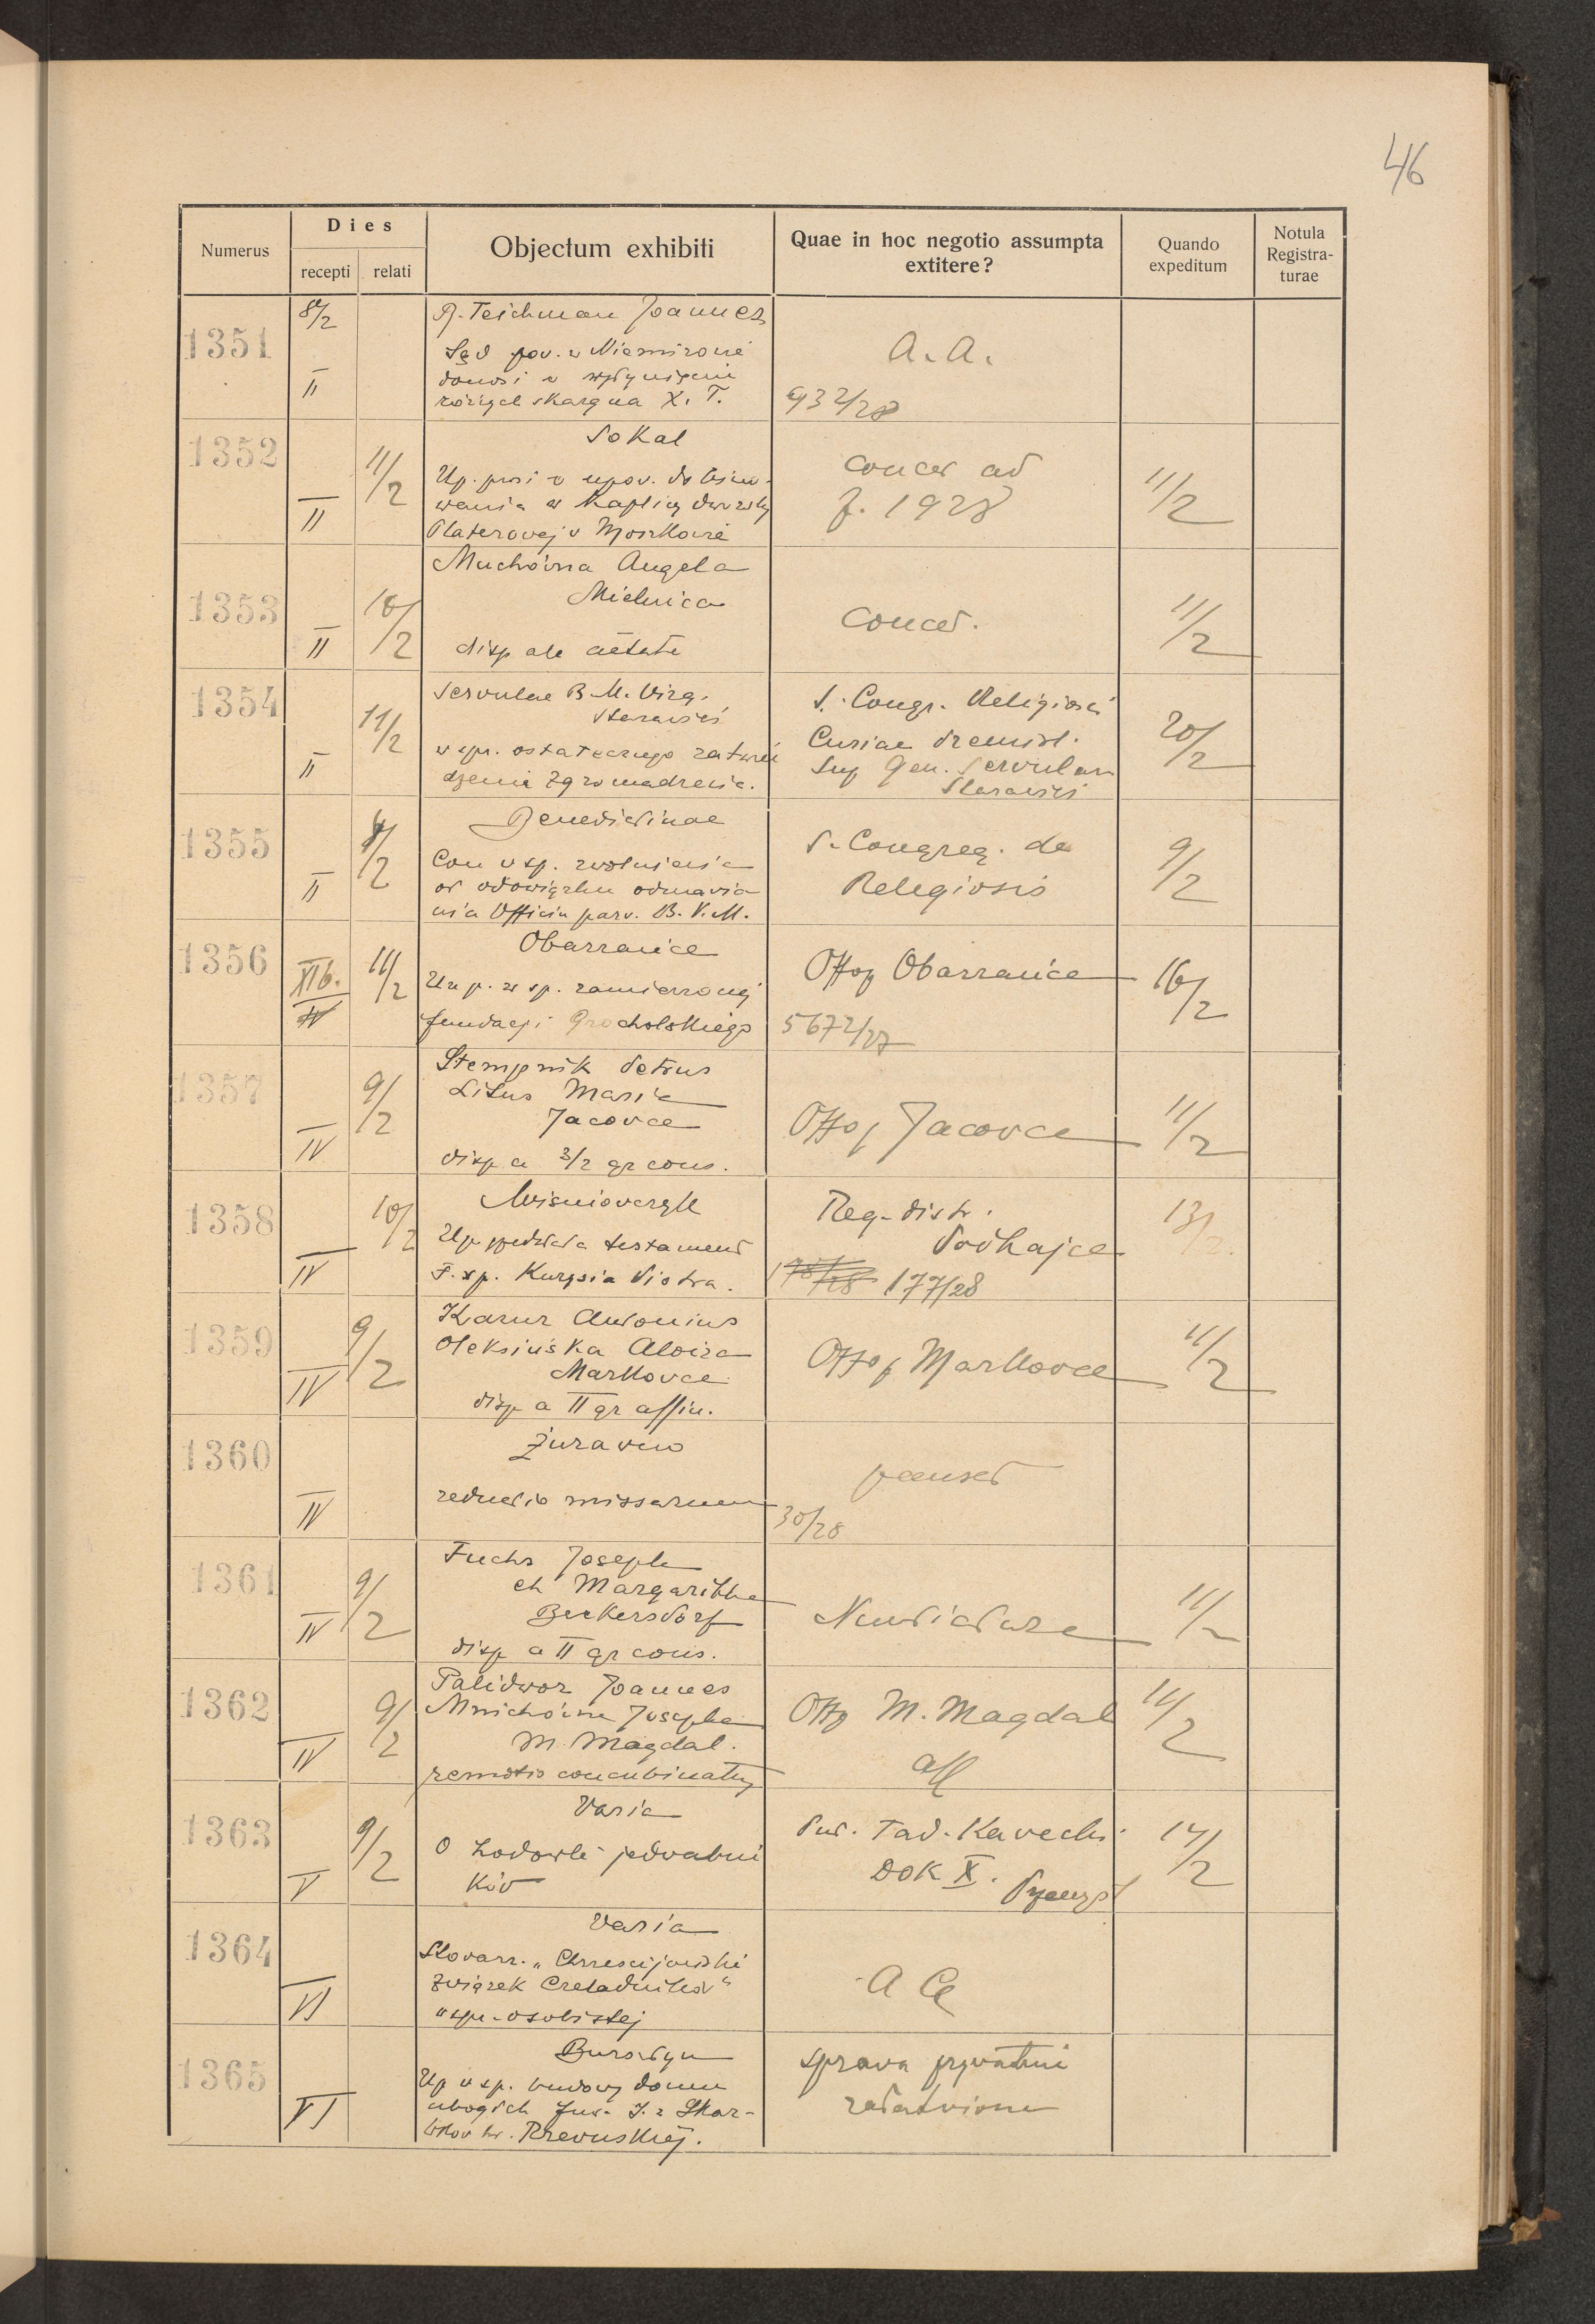 46
Numerus
Dies
recepti
relati
Objectum exhibiti
Quae in hoc negotio assumpta
extitere?
Quando
expeditum
Notula
Registra-
turae
1351
8/2
II
R. Teichman Joannes
Sąd pov. w Niemirowie
donosi o wpłynięciu
skarg na X. T.
A. A.
932/28
1352
II
11/2
Sokal
Up. prosi o upov. do bino-
wania w kaplicy dworskiej
Platerovej v Moszkowie
conces ad
f. 1928
11/2
1353
II
10/2
Muchówna Angela
Mielnica
disp ab aetate
conces.
11/2
1354
II
11/2
Servulae B. M. Virg.
Starawieś
w spr. ostatecznego zatwier
dzenia Zgromadzenia.
S. Congr. Religiosi
Curiae Premisl.
Sup Gen. Servular
Starawieś
20/2
1355
II
9/2
Benedictinae
Con v sp. zwolnienia
od obowiązku odmawia
nia Officiu parv. B. V. M.
S. Congreg. de
Religiosis
9/2
1356
XIb.
IV
11/2
Obarzance
Up. w sp. zamierzonej
fundacji Grocholskiego
Offo Obarzance
5672/27
16/2
1357
IV
9/2
Stempnik Petrus
Litus Maria
Jacovce
disp a 3/2 gr cons.
Offo Jacovce
11/2
1358
IV
10/2
Wiśniovczyk
Up. przedkłada testament
ś. p. Kurysia Piotra.
Reg. distr.
Podhajce
177/28
13/2
1359
IV
9/2
Karur Antonius
Oleksińska Aloiza
Markovce
disp a II gr affin.
Offo Markovce
11/2
1360
IV
Żuravno
reductio missarum
30/28
1361
IV
9/2
Fuchs Joseph
et Margaritha
Beckersdorf
disp a II gr cons.
11/2
1362
IV
9/2
Palidwor Joannes
Mnichówna Josepha
M. Magdal.
remotio concubinatus
Offo M. Magdal
all
14/2
1363
V
9/2
Varia
O hodowli jedvabni
kóv
Tad. Kavecki
DOK X.
Przemyśl
14/2
1364
VI
Varia
Stovarz. „Chrześcijański
Związek Czeladników"
v spr. osobistej
A A
1365
VI
Bursztyn
Up v sp. budowy domu
ubogich fun. J. z Skar-
bków hr. Rzevuskiej.
sprava pryvatnie
załatviona